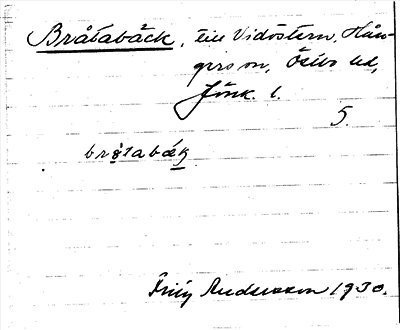 Bråtabäck, till Vidöstern, Hån-
gers sn, Östbo hd,
Jönk. l.
5.
brotabäk
Fritz Andersson 1930.